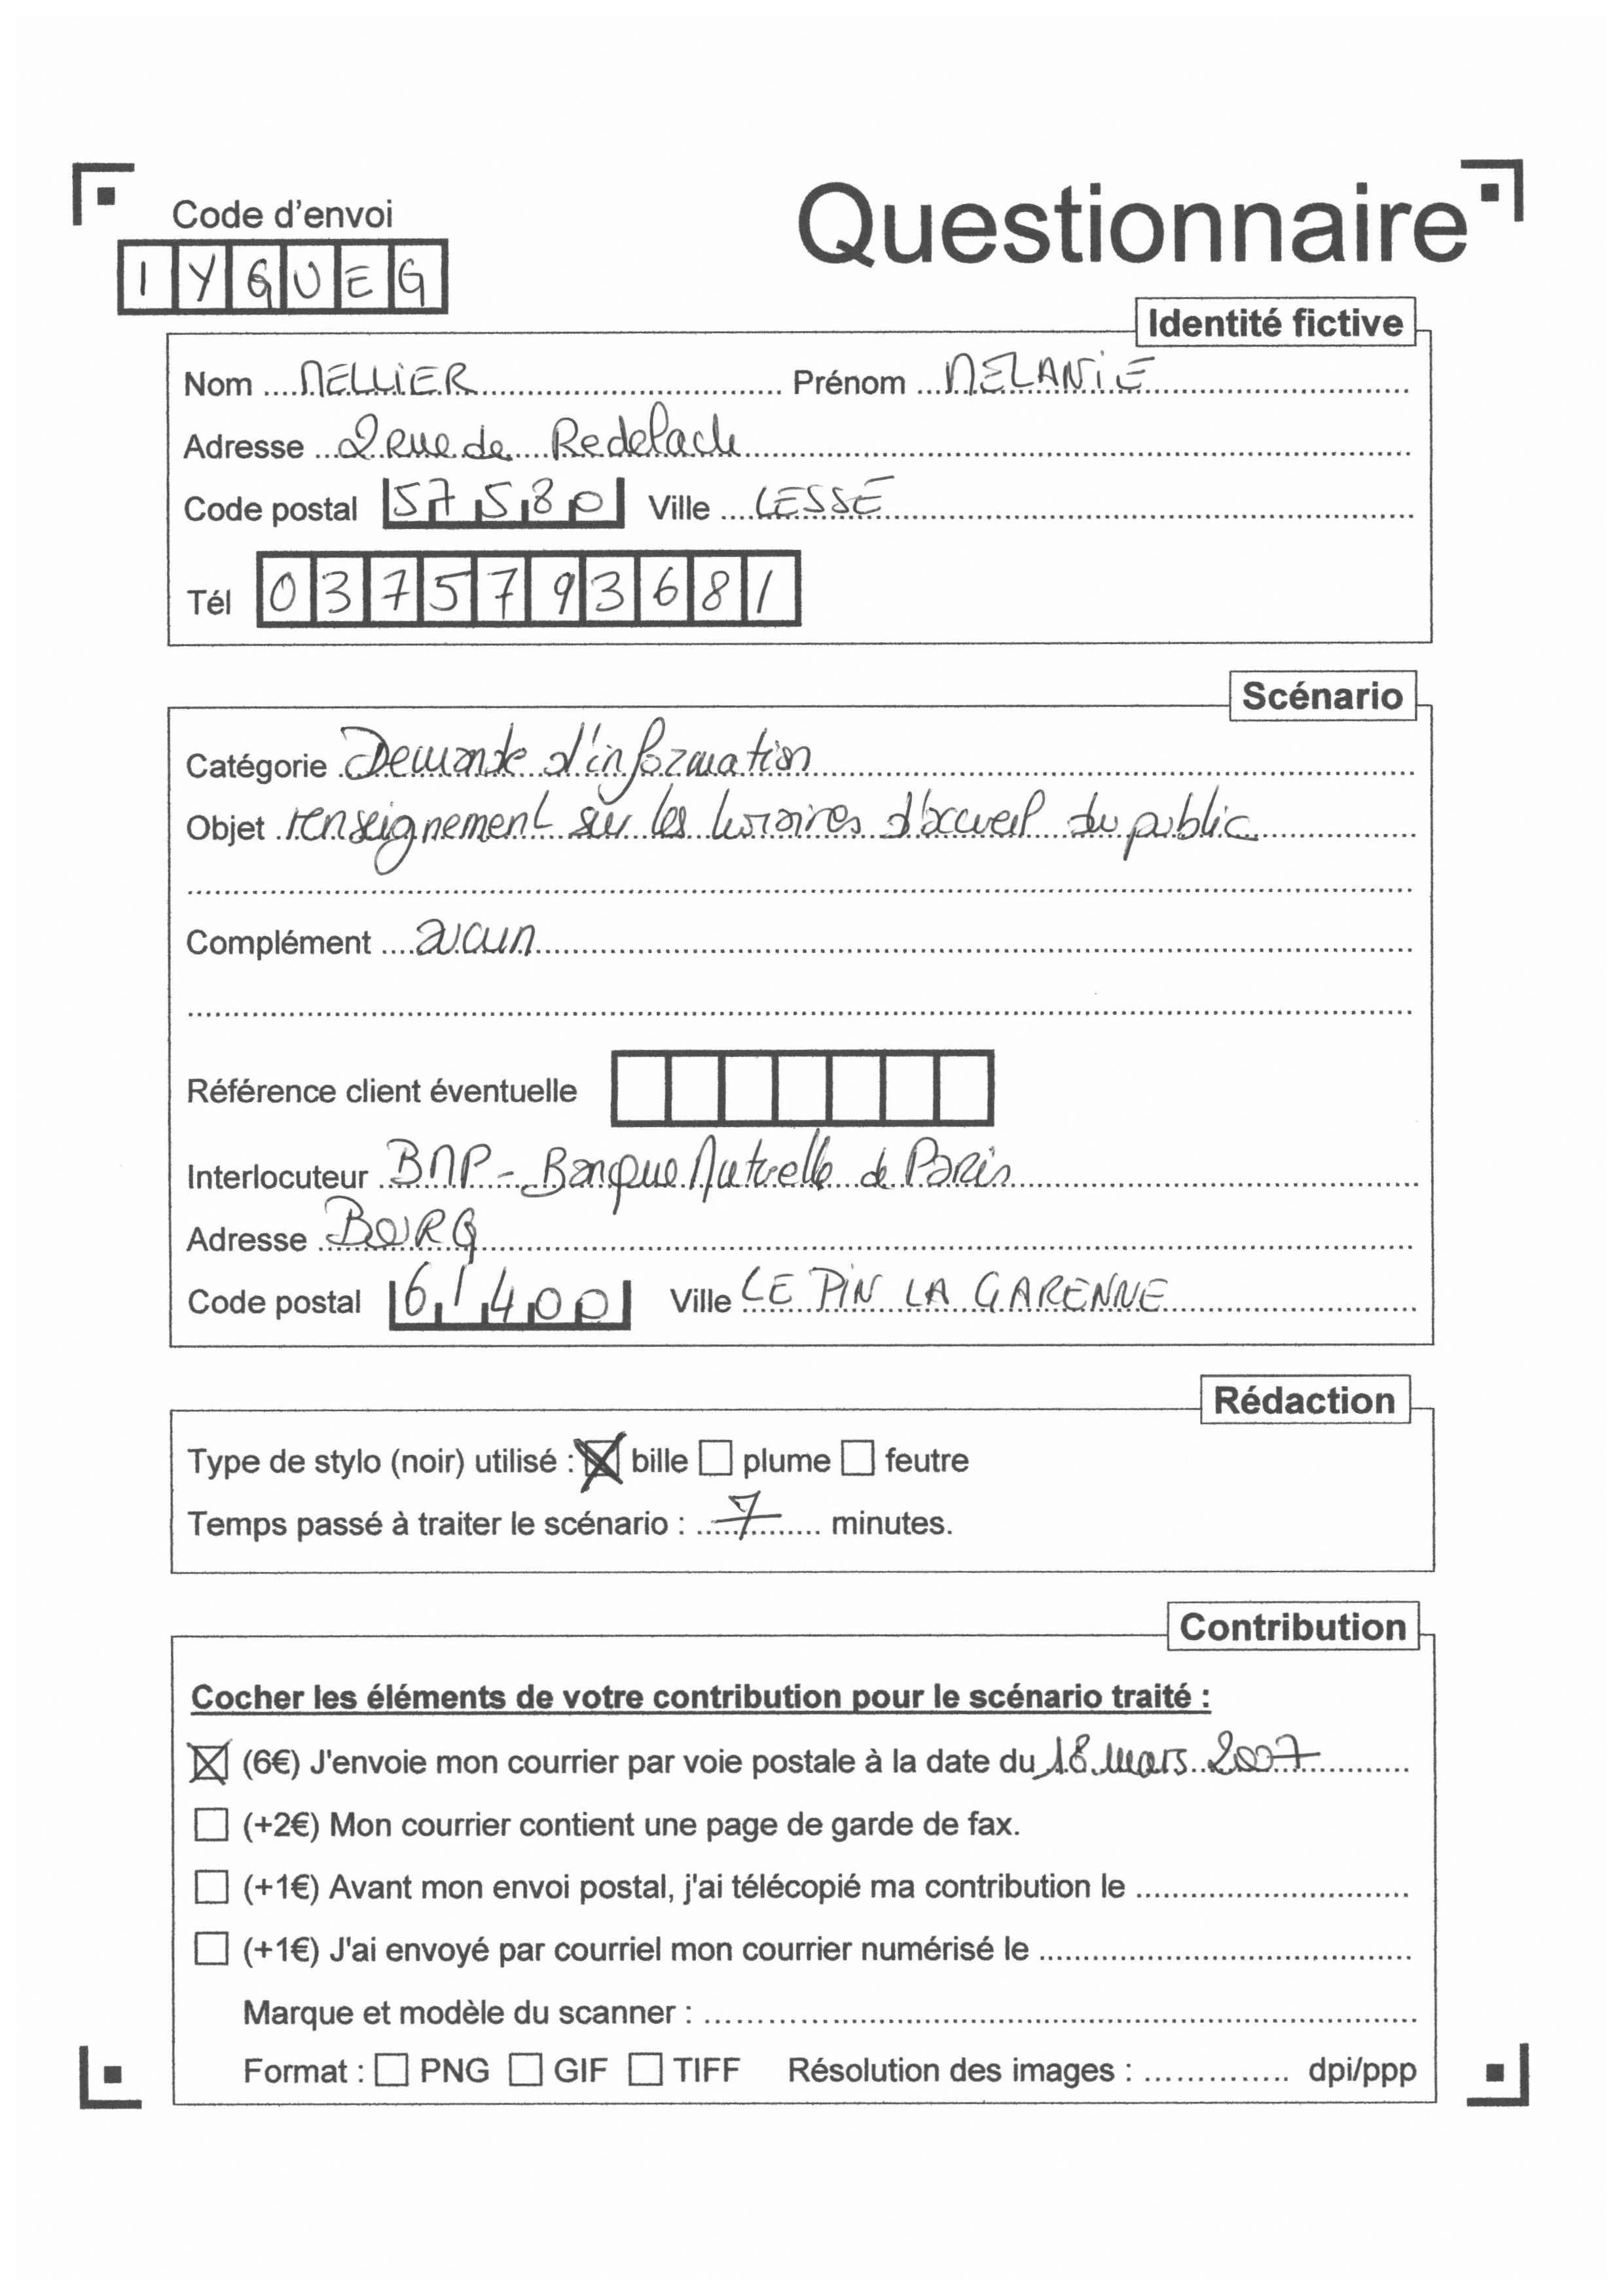 Code d'envoi
Questionnaire
IYGUEG
Identité fictive
Nom MELLIER Prénom MELANIE
Adresse 2 Rue de Redelach
Code postal 57580 Ville LESSE
Tél 0375793681
Scénario
Catégorie Demande d'information
Objet renseignement sur les horaires d'accueil du public
Complément aucun
Référence client éventuelle
Interlocuteur BMP - Banque Mutuelle de Paris
Adresse BOURG
Code postal 61400 Ville LE PIN LA GARENNE
Rédaction
Type de stylo (noir) utilisé : bille plume feutre
Temps passé à traiter le scénario : 7 minutes.
Contribution
Cocher les éléments de votre contribution pour le scénario traité :
(6€) J'envoie mon courrier par voie postale à la date du 18 mars 2007
(+2€) Mon courrier contient une page de garde de fax.
(+1€) Avant mon envoi postal, j'ai télécopié ma contribution le
(+1€) J'ai envoyé par courriel mon courrier numérisé le
Marque et modèle du scanner :
Format : PNG GIF TIFF Résolution des images : dpi/ppp